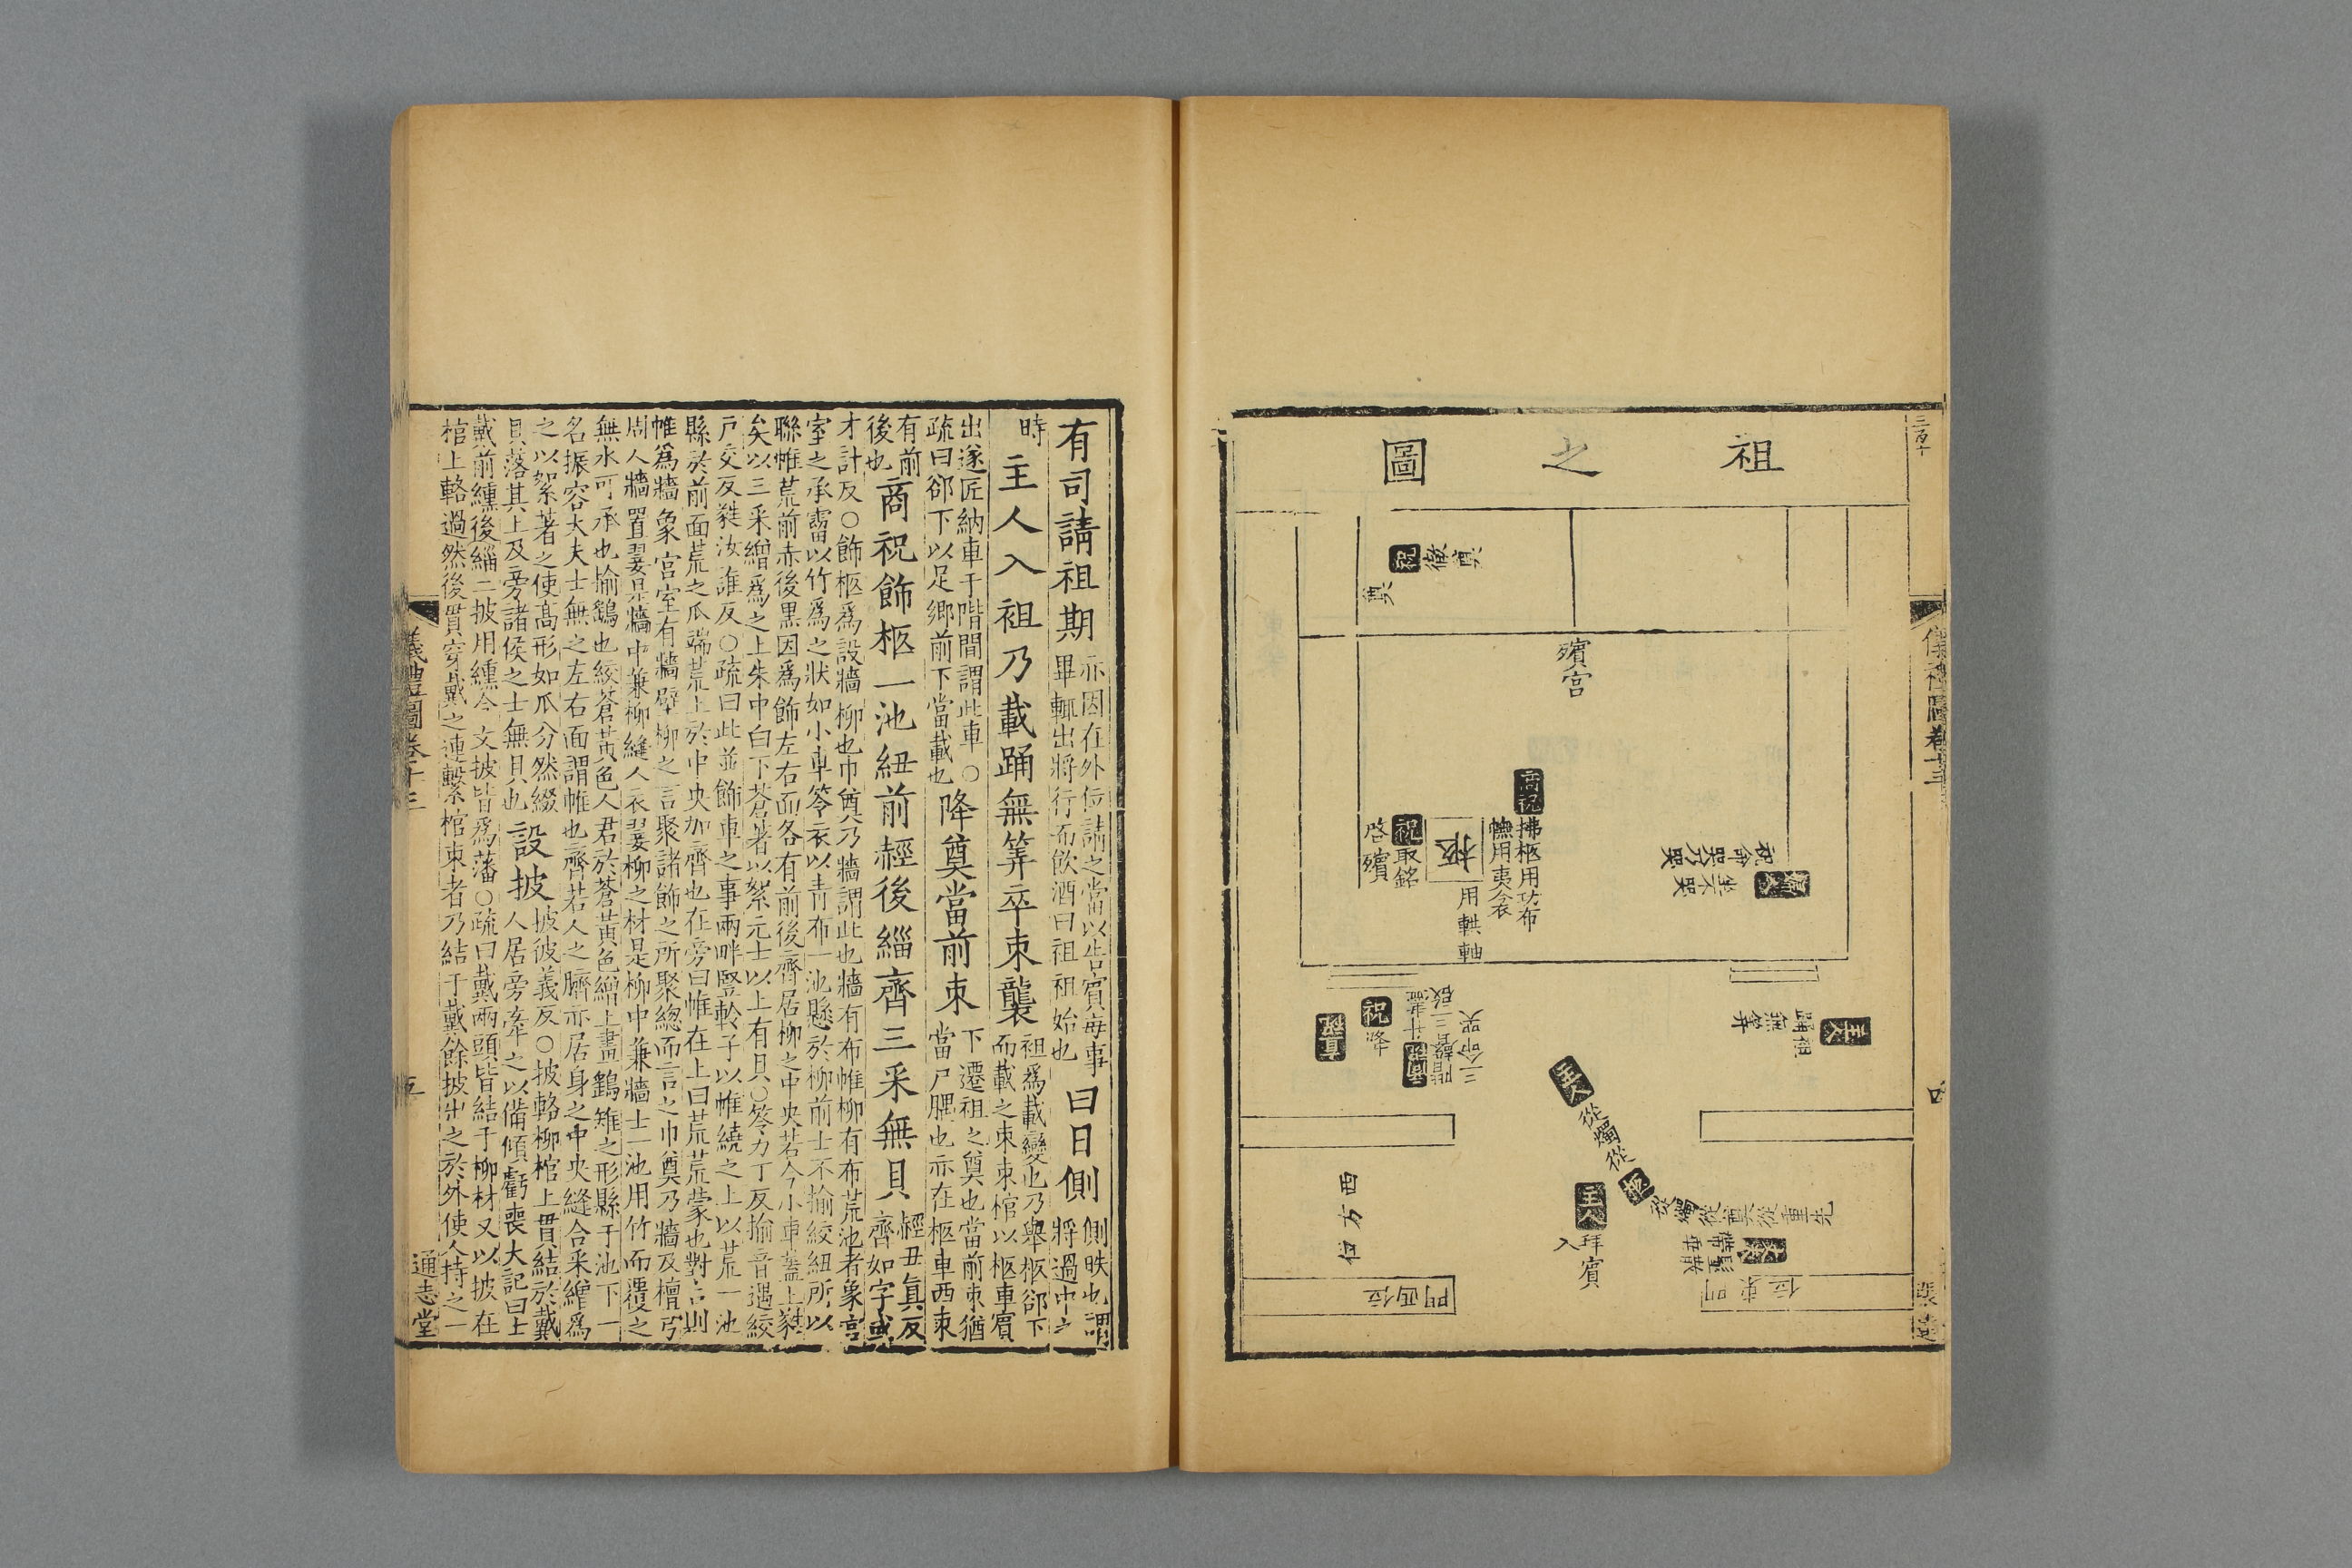 祖之圖
殯宮
祝
徹奠
奠
商祝
拂柩用功布
幠用夷衾
柩
用輁軸
祝
取銘
啓殯
婦人
坐不哭
主人
踊無筭
祝
降
商祝
主人
從
燭
從
柩
從
燭
從奠從重先
主人
拜賓
入
西方位
門西位
門東位
儀禮圖卷十三
四
有司請祖期亦因在外位請之當以告賓每事畢輒出將行而飲酒曰祖祖始也曰日側側昳也謂將過中之
時主人入祖乃載踊無筭卒束襲袒爲載變也乃舉柩郤下而載之束束棺以柩車賓
出遂匠納車于階間謂此車○疏曰郤下以足鄉前下當載也降奠當前束下遷祖之奠也當前束猶當尸腢也亦在柩車西束
有前後也商祝飾柩一池紐前䞓後緇齊三采無貝䞓丑眞反齊如字或
才計反○飾柩爲設牆柳也巾奠乃牆謂此也牆有布帷柳有布荒池者象宮
室之承霤以竹爲之狀如小車笭衣以青布一池懸於柳前士不揄絞紐所以
聯帷荒前赤後黑因爲飾左右面各有前後齊居柳之中央若今小車蓋上蕤
矣以三采繒爲之上朱中白下蒼著以絮元士以上有貝○笭力丁反揄音遥絞
戸交反蕤汝誰反○疏曰此並飾車之事兩畔豎軨子以帷繞之上以荒一池
縣於前面荒之爪端荒上於中央加齊也在旁曰帷在上曰荒荒蒙也對言則
帷爲牆象宮室有牆壁柳之言聚諸飾之所聚總而言之巾奠乃牆及檀弓
周人牆置翣是牆中兼柳縫人衣翣柳之材是柳中兼牆士一池用竹而覆之
無水可承也揄鷂也絞蒼黃色人君於蒼黃色繒上畫鷂雉之形縣于池下一
名振容大夫士無之左右面謂帷也齊若人之臍亦居身之中央縫合采繒爲
之以絮著之使高形如瓜分然綴
貝落其上及旁諸侯之士無貝也設披披彼義反○披輅柳棺上貫結於戴人居旁牽之以備傾虧喪大記曰士
戴前纁後緇二披用纁今文披皆爲藩○疏曰戴兩頭皆結于柳材又以披在
棺上輅過然後貫穿戴之連繫棺束者乃結于戴餘披出之於外使人持之一
儀禮圖卷十三
五
通志堂